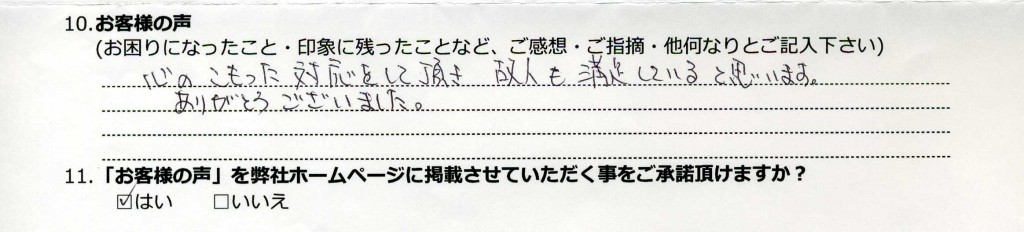 10.お客様の声
(お困りになったこと・印象に残ったことなど、ご感想・ご指摘・他何なりとご記入下さい)
心のこもった対応をして頂き 故人も満足していると思います。
ありがとうございました。
11.「お客様の声」を弊社ホームページに掲載させていただく事をご承諾頂けますか？
☑はい □いいえ